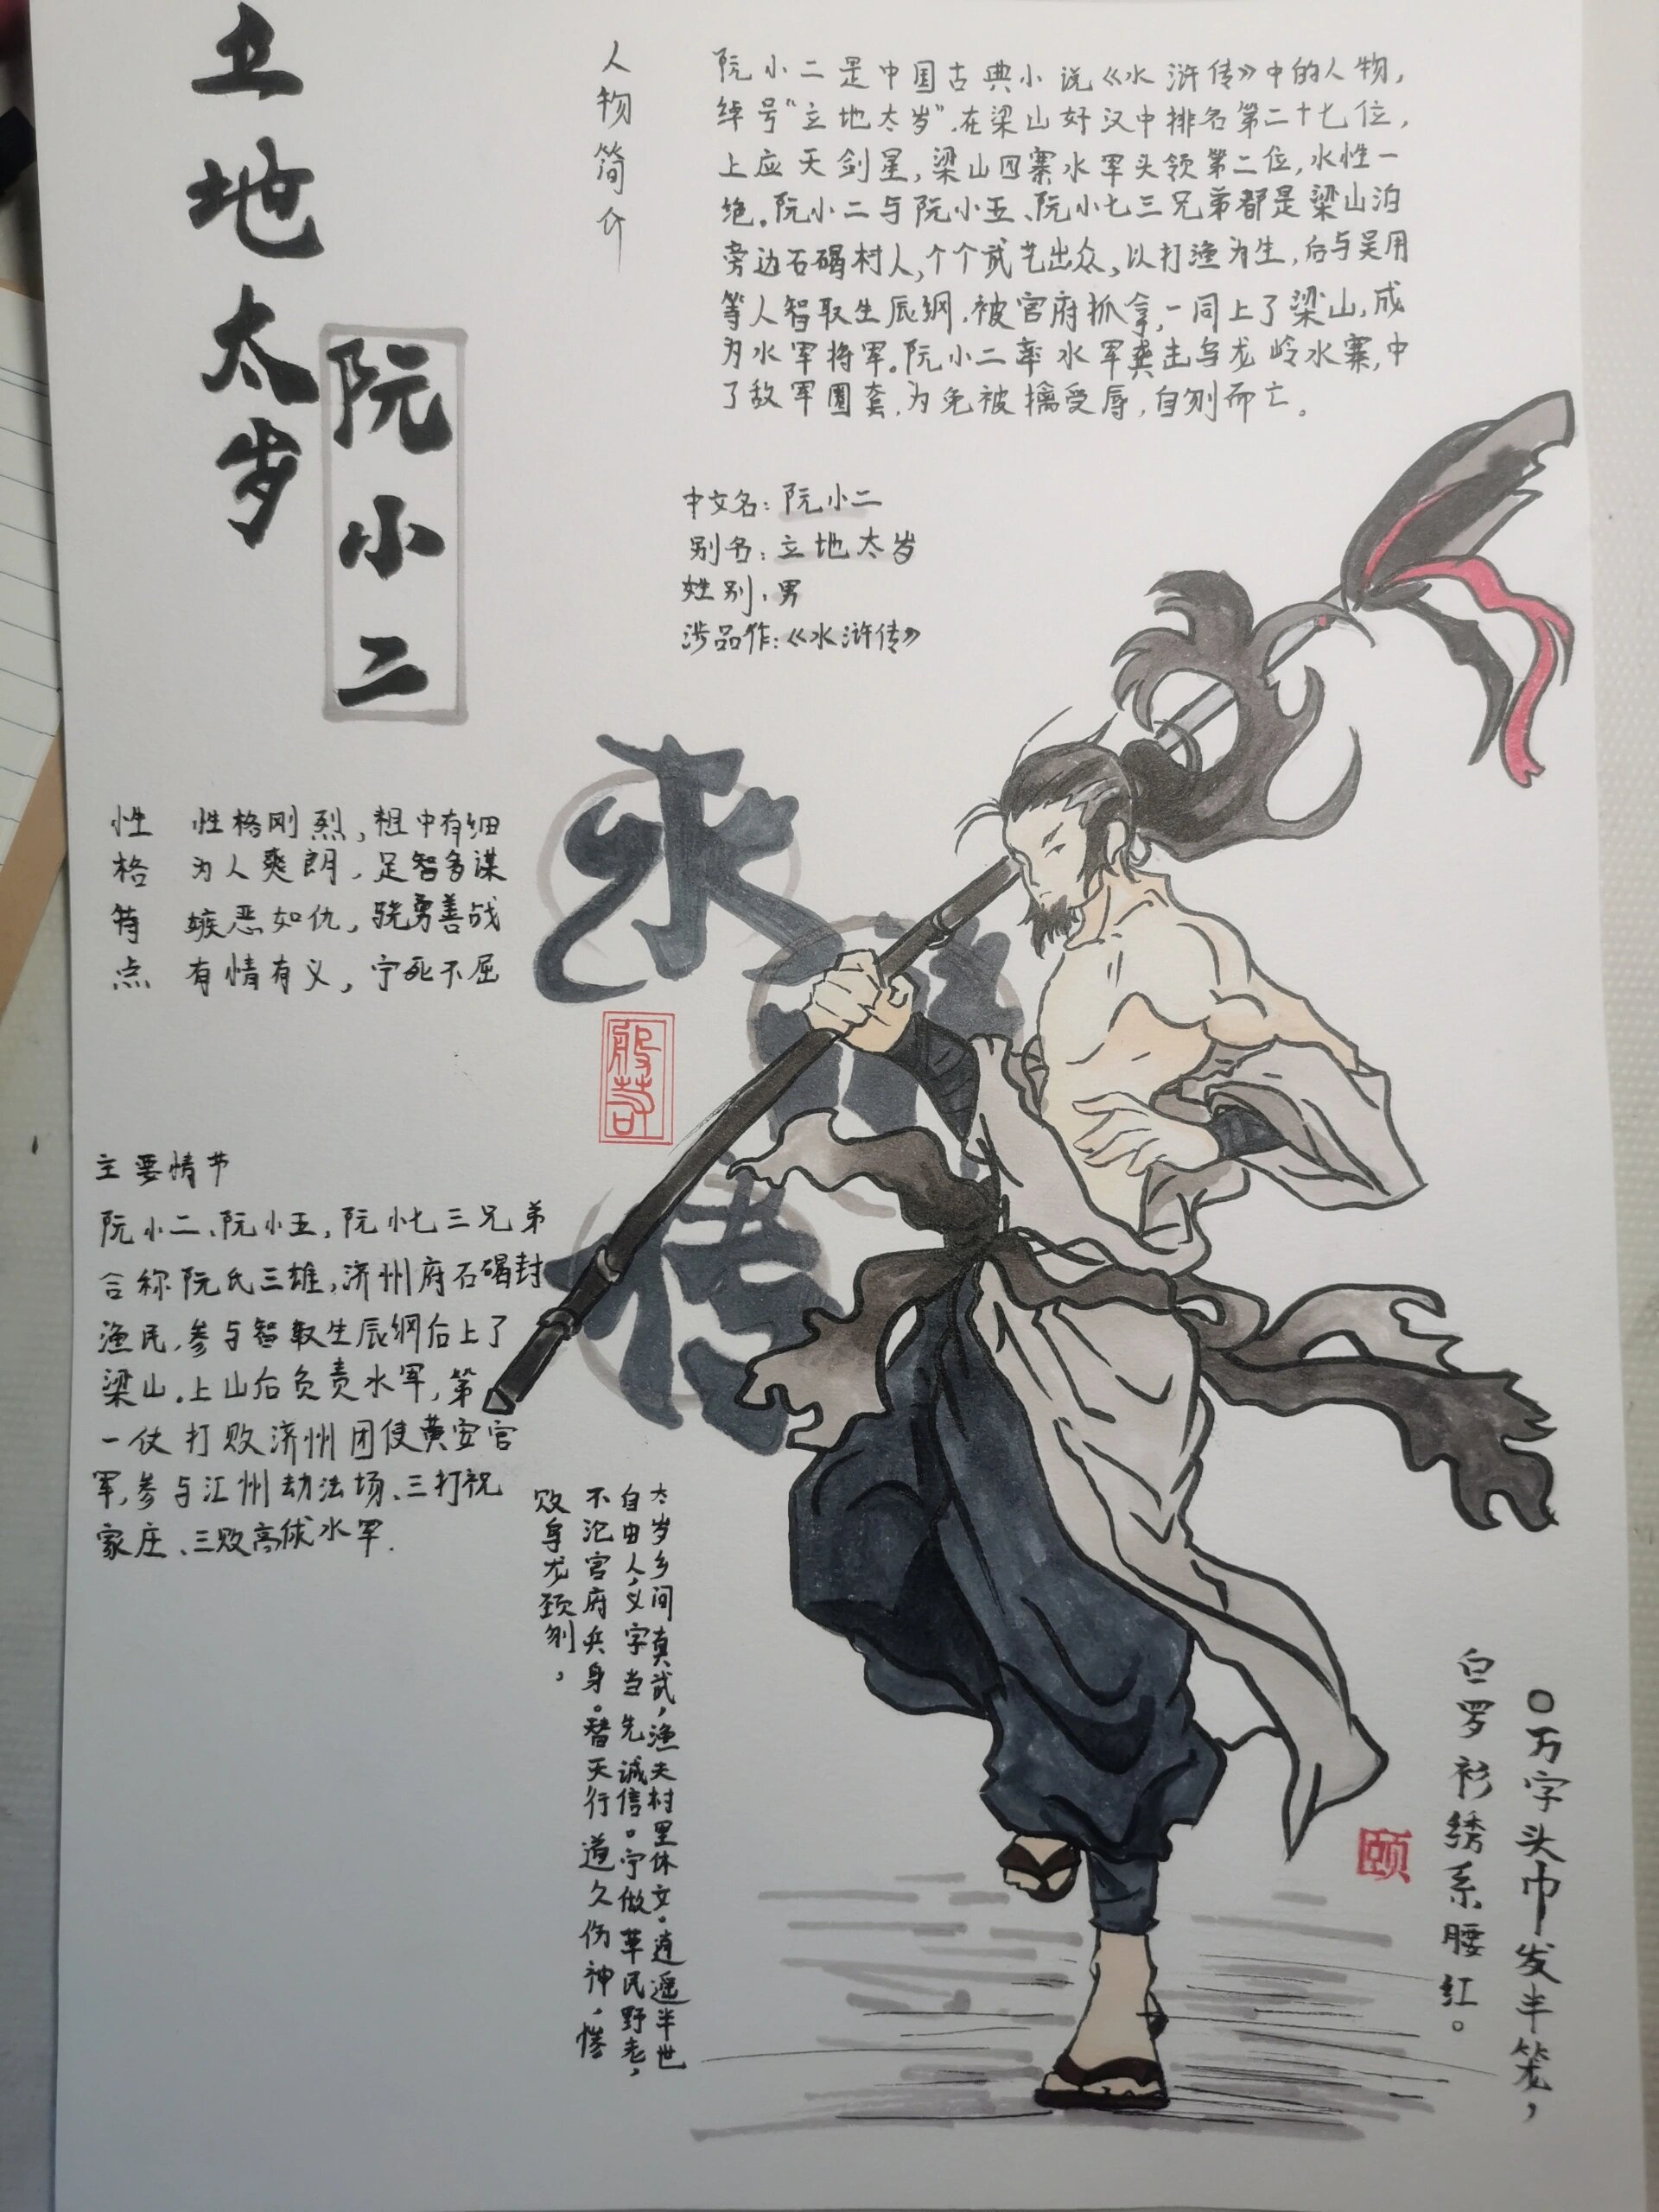 立地太岁
阮小二
人物简介
阮小二是中国古典小说《水浒传》中的人物,
绰号“立地太岁”.在梁山好汉中排名第二十七位,
上应天剑星,梁山四寨水军头领第二位,水性一
绝.阮小二与阮小五、阮小七三兄弟都是梁山泊
旁边石碣村人,个个武艺出众,以打渔为生,后与吴用
等人智取生辰纲.被官府抓拿,一同上了梁山,成
为水军将军.阮小二率水军袭击乌龙岭水寨,中
了敌军圈套,为免被擒受辱,自刎而亡。
中文名:阮小二
别名:立地太岁
姓别,男
涉品作:《水浒传》
水浒
性格特点
性格刚烈,粗中有细
为人爽朗,足智多谋
嫉恶如仇,骁勇善战
有情有义,宁死不屈
主要情节
阮小二、阮小五,阮小七三兄弟
合称阮氏三雄,济州府石碣封
渔民,参与智取生辰纲后上了
梁山.上山后负责水军,第
一仗打败济州团使黄安官
军,参与江州劫法场、三打祝
家庄、三败高俅水军.
太岁乡间真武,渔夫村里休文.逍遥半世
自由人,义字当先诚信。宁做草民野老,
不沱官府兵身。替天行道久伤神,惨
败身龙颈刎,
万字头巾发丰笼,
白罗衫绣系腰红。
颐